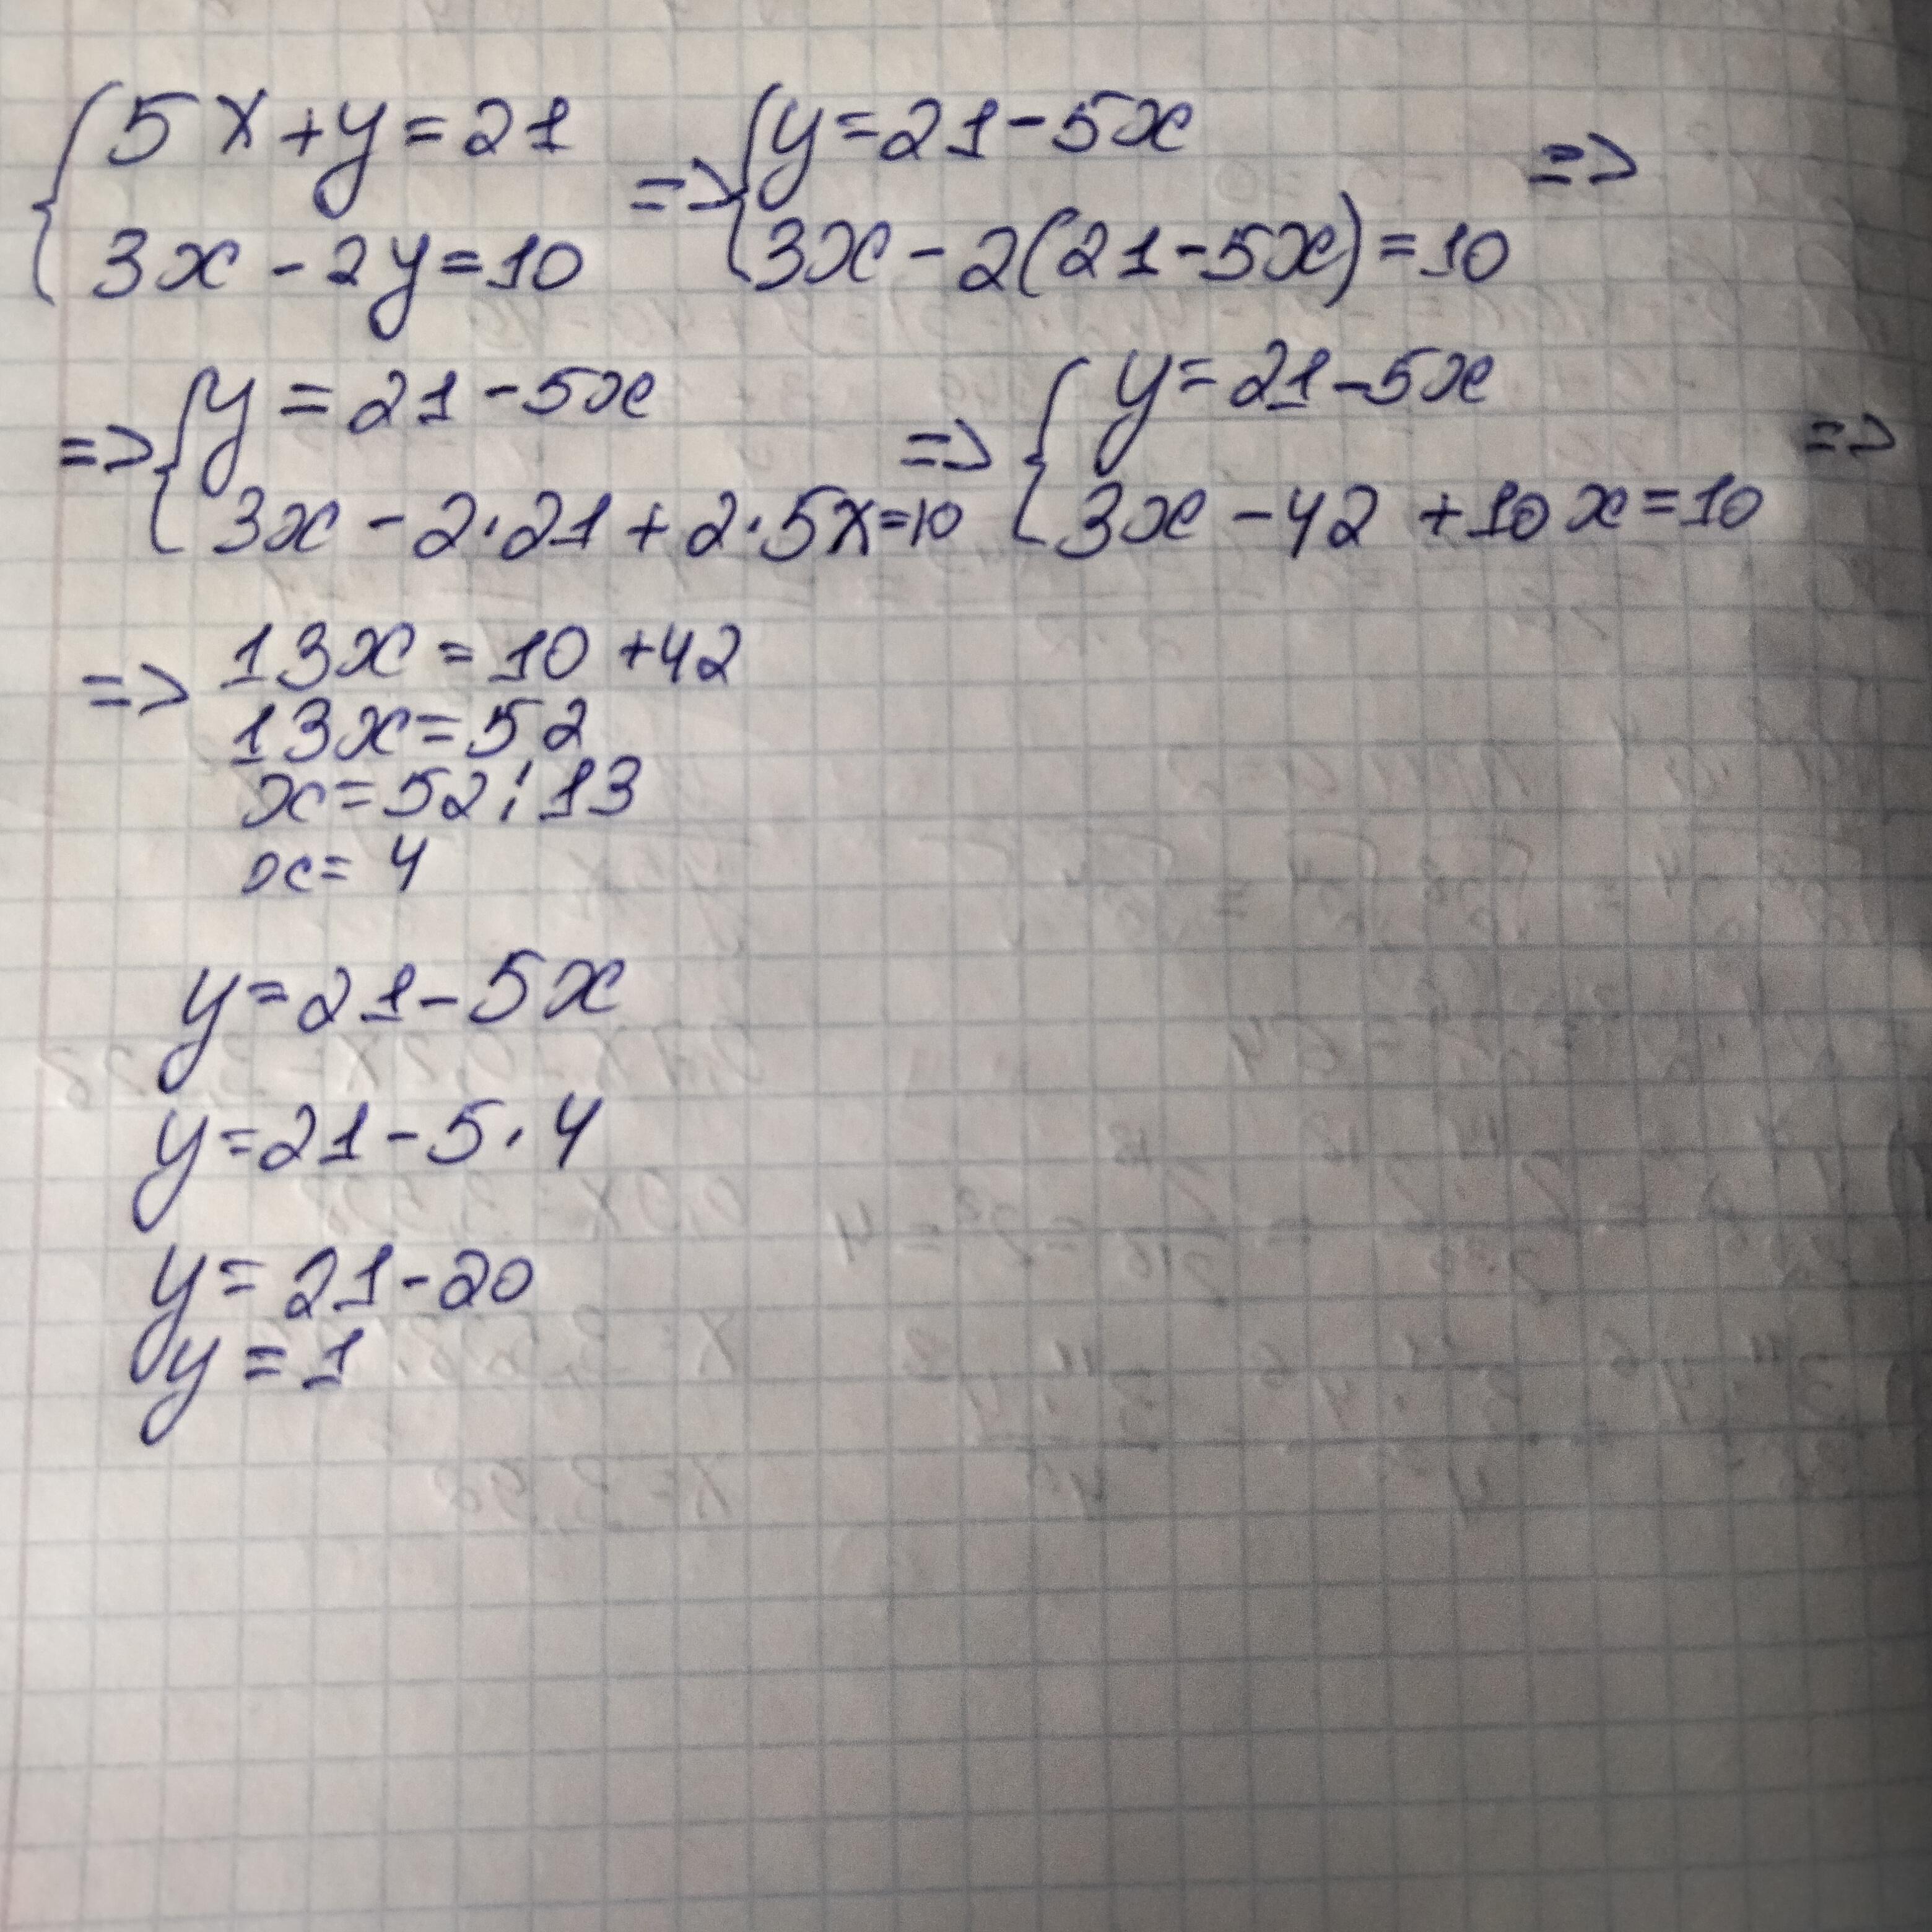 { 5x + y = 21 => { y = 21 - 5x =>
3x - 2y = 10 3x - 2(21 - 5x) = 10
=> { y = 21 - 5x => { y = 21 - 5x =>
3x - 2·21 + 2·5x = 10 3x - 42 + 10x = 10
=> 13x = 10 + 42
13x = 52
x = 52 : 13
x = 4
y = 21 - 5x
y = 21 - 5·4
y = 21 - 20
y = 1